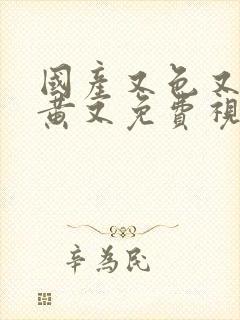 國產又色又
黃又免費視
辛為民